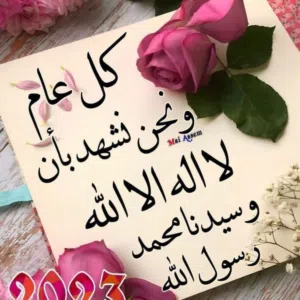 كل عام
ونحن نشهد بأن
Mai Azzem
لا اله الا الله
وسيدنا محمد
رسول الله
2023